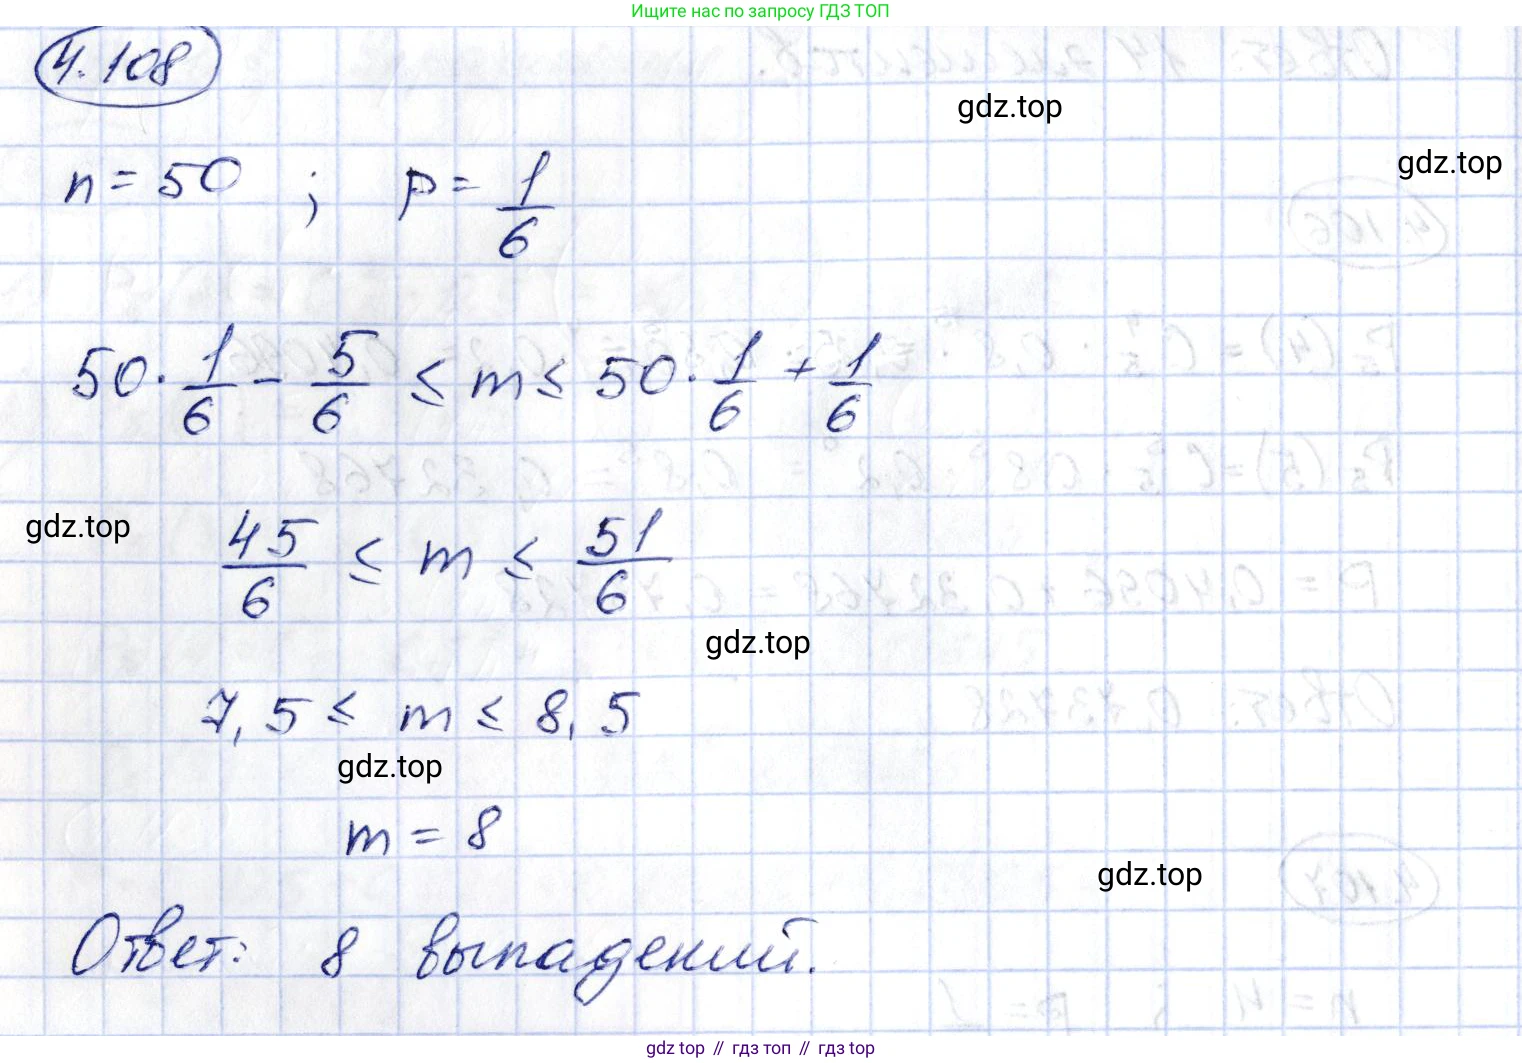 Ищите нас по запросу ГДЗ ТОП
4.108
gdz.top
gdz.top
n = 50 ; p = 1/6
50 · 1/6 - 5/6 ≤ m ≤ 50 · 1/6 + 1/6
gdz.top
45/6 ≤ m ≤ 51/6
gdz.top
7,5 ≤ m ≤ 8,5
gdz.top
m = 8
gdz.top
Ответ: 8 выпадений.
gdz top // гдз топ // гдз top